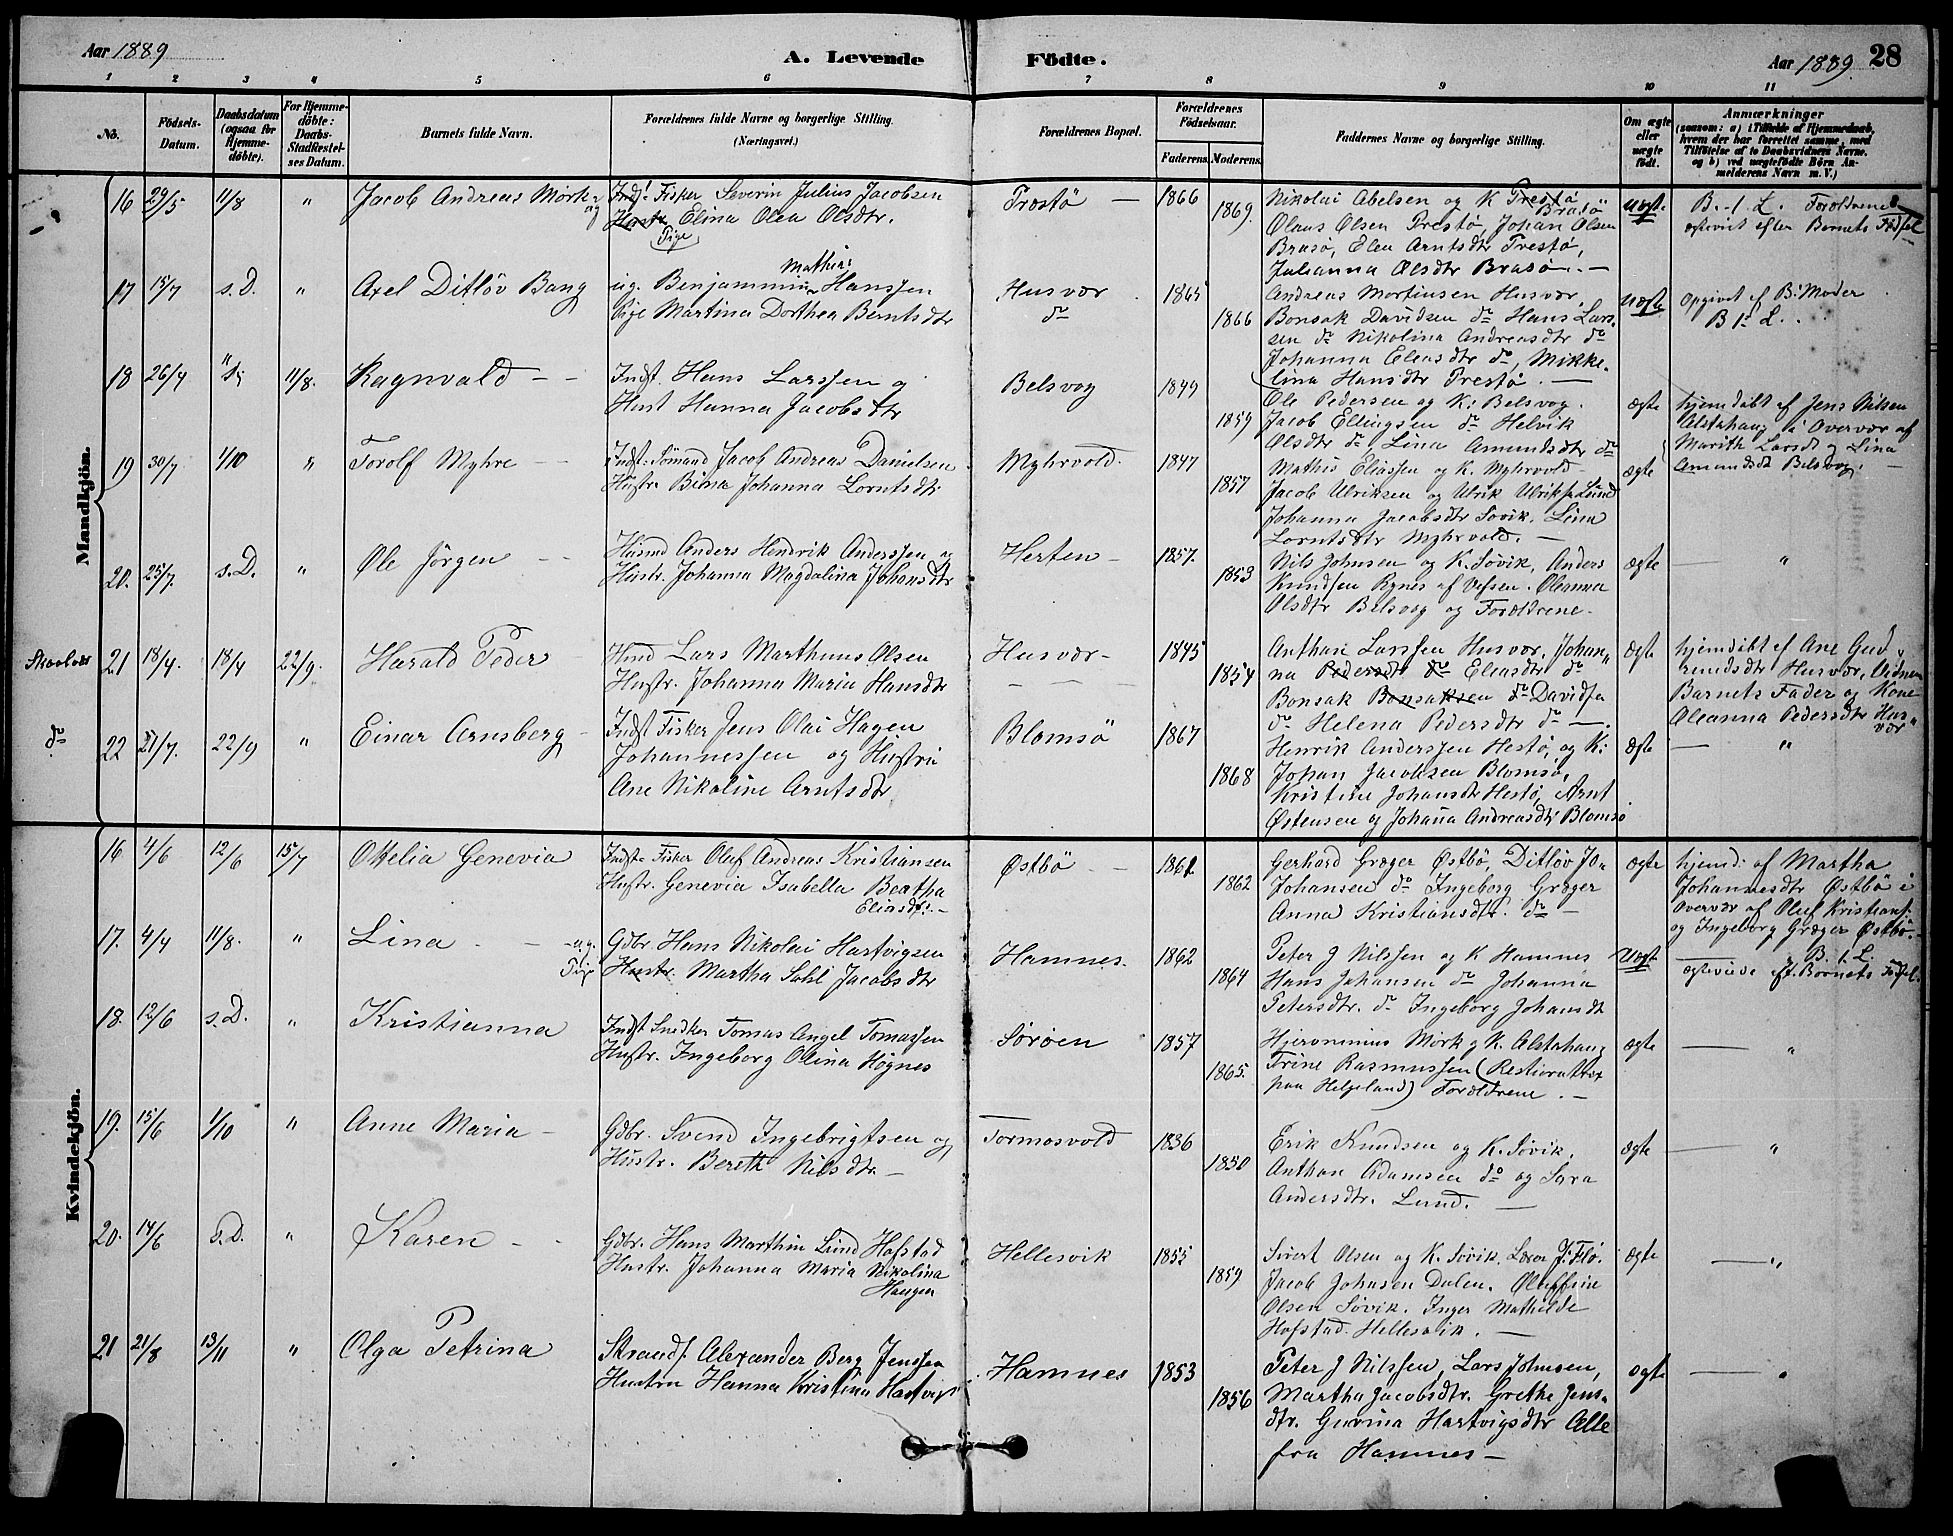 Aar 1889
A. Levende Födte.
Aar 1889. 28
1 2 3 4 5 6 7 8 9 10 11
No.
Födsels-Datum.
Daabsdatum (ogsaa for Hjemme-döbte).
For Hjemme-döbte: Daabs-Stadfæstel-ses Datum.
Barnets fulde Navn.
Forældrenes fulde Navne og borgerlige Stilling. (Næringsvei.)
Forældrenes Bopæl.
Forældrenes Födselsaar.
Faderens. Moderens.
Faddernes Navne og borgerlige Stilling.
Om ægte eller uægte födt.
Anmærkninger
(saasom: a) i Tilfælde af Hjemmedaab, hvem der har forrettet samme, med Tilföielse af to Daabsvidners Navne, og b) ved uægtefödte Börn An-melderens Navn m. V.)
Mandkjön.
16 29/5 11/8 " Jacob Andreas Mørk
Inds. Fisker Severin Julius Jacobsen og
Hustr Elina Olea Olsdtr.
Pige
Træstø — 1866 1869.
Nikolai Abelsen og K Træstø
Brasø
Olaus Olsen Træstø, Johan Olsen
Brasø, Elen Arntsdtr Træstø,
Julianna Olsdtr Brasø. —
Uægte
B. 1. L. Forældrene
ægteviet efter Barnets Fødsel
17 15/7 s.D. " Axel Ditløv Bang
ug. Benjamin Mathias Hanssen
Pige Martina Dorthea Berntsdtr
Husvær do 1865 1866
Andreas Mortinsen Husvær,
Bonsak Davidsen do Hans Lars-
sen do Nikolina Andreasdtr do
Johanna Eleasdtr do, Mikke-
lina Hansdtr Træstø. —
Uægte
Opgivet af B: Moder
B 1ste L.
18 26/4 11/8. Ragnvald — —
Indst. Hans Larssen og
Hust Hanna Jacobsdtr
Belsvog 1849 1859
Ole Pedersen og K: Belsvog.
Jacob Ellingsen do Helvik
Olsdtr do, Lina Amundsdtr do
ægte
hjemdøbt af Jens Nilsen
Alstahaug i Overvær af
Marith Larsdt og Lina
Amundsdt Belsvog. —
19 30/7 1/10 " Torolf Myhre — —
Indst. Sömand Jacob Andreas Danielsen
Hustr. Bina Johanna Lorntsdtr
Myhrvold. 1847 1857
Mathis Eliassen og K. Myhrvold —
Jacob Ulriksen og Ulrik Ulriks. Lund
Johanna Jacobsdtr Søvik. Lina
Lorntsdtr Myhrvold. —
ægte
20. 25/7. s.D. " Ole Jørgen — —
Husmd Anders Hendrik Anderssen og
Hustr. Johanna Magdalina Johansdtr
Herten — 1857. 1853
Nils Johnsen og K. Søvik, Anders
Knudsen Rynes af Vefsen. Oleanna
Olsdtr Belsvog og Forældrene.
ægte — "
21 18/4. 18/4 22/9. Harald Peder —
Hmd Lars Marthinus Olsen
Hustr. Johanna Maria Hansdtr
Husvær — 1845 1854
Anthon Larssen Husvær, Johan-
na Pedersdtr do Eliasdtr do
Bonsak Bonsaksen do Davids.
do Helena Pedersdtr do —.
ægte
hjemdøbt af Ane Gud-
mundsdtr Husvær, Vidner
Barnets Fader og Kone
Oleanna Pedersdtr Hus-
vær
do 22 21/7. 22/9 " Einar Arnsberg —
Indst Fisker Jens Olai Hagen
Johannessen og Hustru
Ane Nikoline Arntsdtr
Blomsö 1867 1868
Henrik Anderssen Hestø, og K:
Johan Jacobsen Blomsø,
Kristine Johansdtr Hestø, Arnt
Østensen og Johana Andreasdtr Blomsø
ægte — "
Kvindekjön.
16 4/6 12/6 15/7 Otelia Genevia
Indst. Fisker Oluf Andreas Kristiansen
Hustr. Genevia Isabella Beatha
Eliasdtr. —
Østbö — 1861 1862
Gerhard Græger Østbø, Ditløv Jo-
Johansen do Ingeborg Græger
Anna Kristiansdtr. do —
ægte
hjemd: af Martha
Johannesdtr Østbø i
Overvær af Oluf Kristians:
og Ingeborg Græger Østbø. —
17. 4/4 11/8. " Lina — —
u.g. Gdbr Hans Nikolai Hartvigsen
Pige Hustr. Martha Sahl Jacobsdtr
Hamnes. 1862 1864
Peter J Nilssen og K Hamnes
Hans Johansen do Johanna
Petersdtr. do Ingeborg Johansdt
Uægte
B. 1. L.
ægteviede eft. Barnets Fødsel.
18. 12/6 s.D. " Kristianna
Indst Snedker Tomas Angel Tomassen
Hustr. Ingeborg Olina Høgnes
Sørøen 1857 1865.
Hjeronimus Mørk og K. Alstahaug
Trine Rasmussen (Restioratter
paa Helgeland) Forældrene. —
ægte — "
19. 15/6 1/10 " Anne Maria —
Gdbr. Svend Ingebrigtsen og
Hustr. Bereth Nilsdtr —
Tormosvold 1836 1850
Erik Knudsen og K. Søvik.
Anthon Adamsen do og Sara
Andersdtr. Lund. —
ægte — "
20. 14/6 s.D. " Karen — —
Gdbr. Hans Marthin Lund Hofstad
Hustr. Johanna Maria Nikolina
Haugen
Hellesvik 1855 1859
Sivert Olsen og K. Søvik. J. Flø.
Jacob Johnsen Dalen. Oluffine
Olsen Søvik. Inger Mathilde
Hofstad. Hellesvik. —
ægte — "
21 21/8 13/11 " Olga Petrina
Strands. Alexander Berg Jenssen
Hustru Hanna Kristina Hartvigs
Hamnes 1853 1856
Peter J Nilssen, Lars Johnsen,
Martha Jacobsdtr. Grethe Jens-
dtr. Gurina Hartvigsdtr Alle
fra Hamnes —
ægte — "